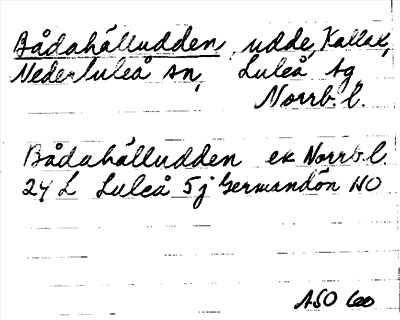 Bådahälludden, udde, Kallax,
Nederluleå sn, Luleå tg
Norrb. l.
Bådahälludden ek Norrb. l.
24 L Luleå 5j Germandön NO
ASO 60